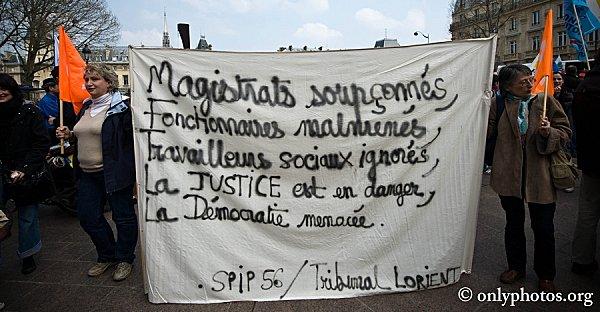 Magistrats soupçonnés,
Fonctionnaires malmenés,
Travailleurs sociaux ignorés,
La JUSTICE est en danger,
La Démocratie menacée.
. SPIP 56 / Tribunal LORIENT
© onlyphotos.org